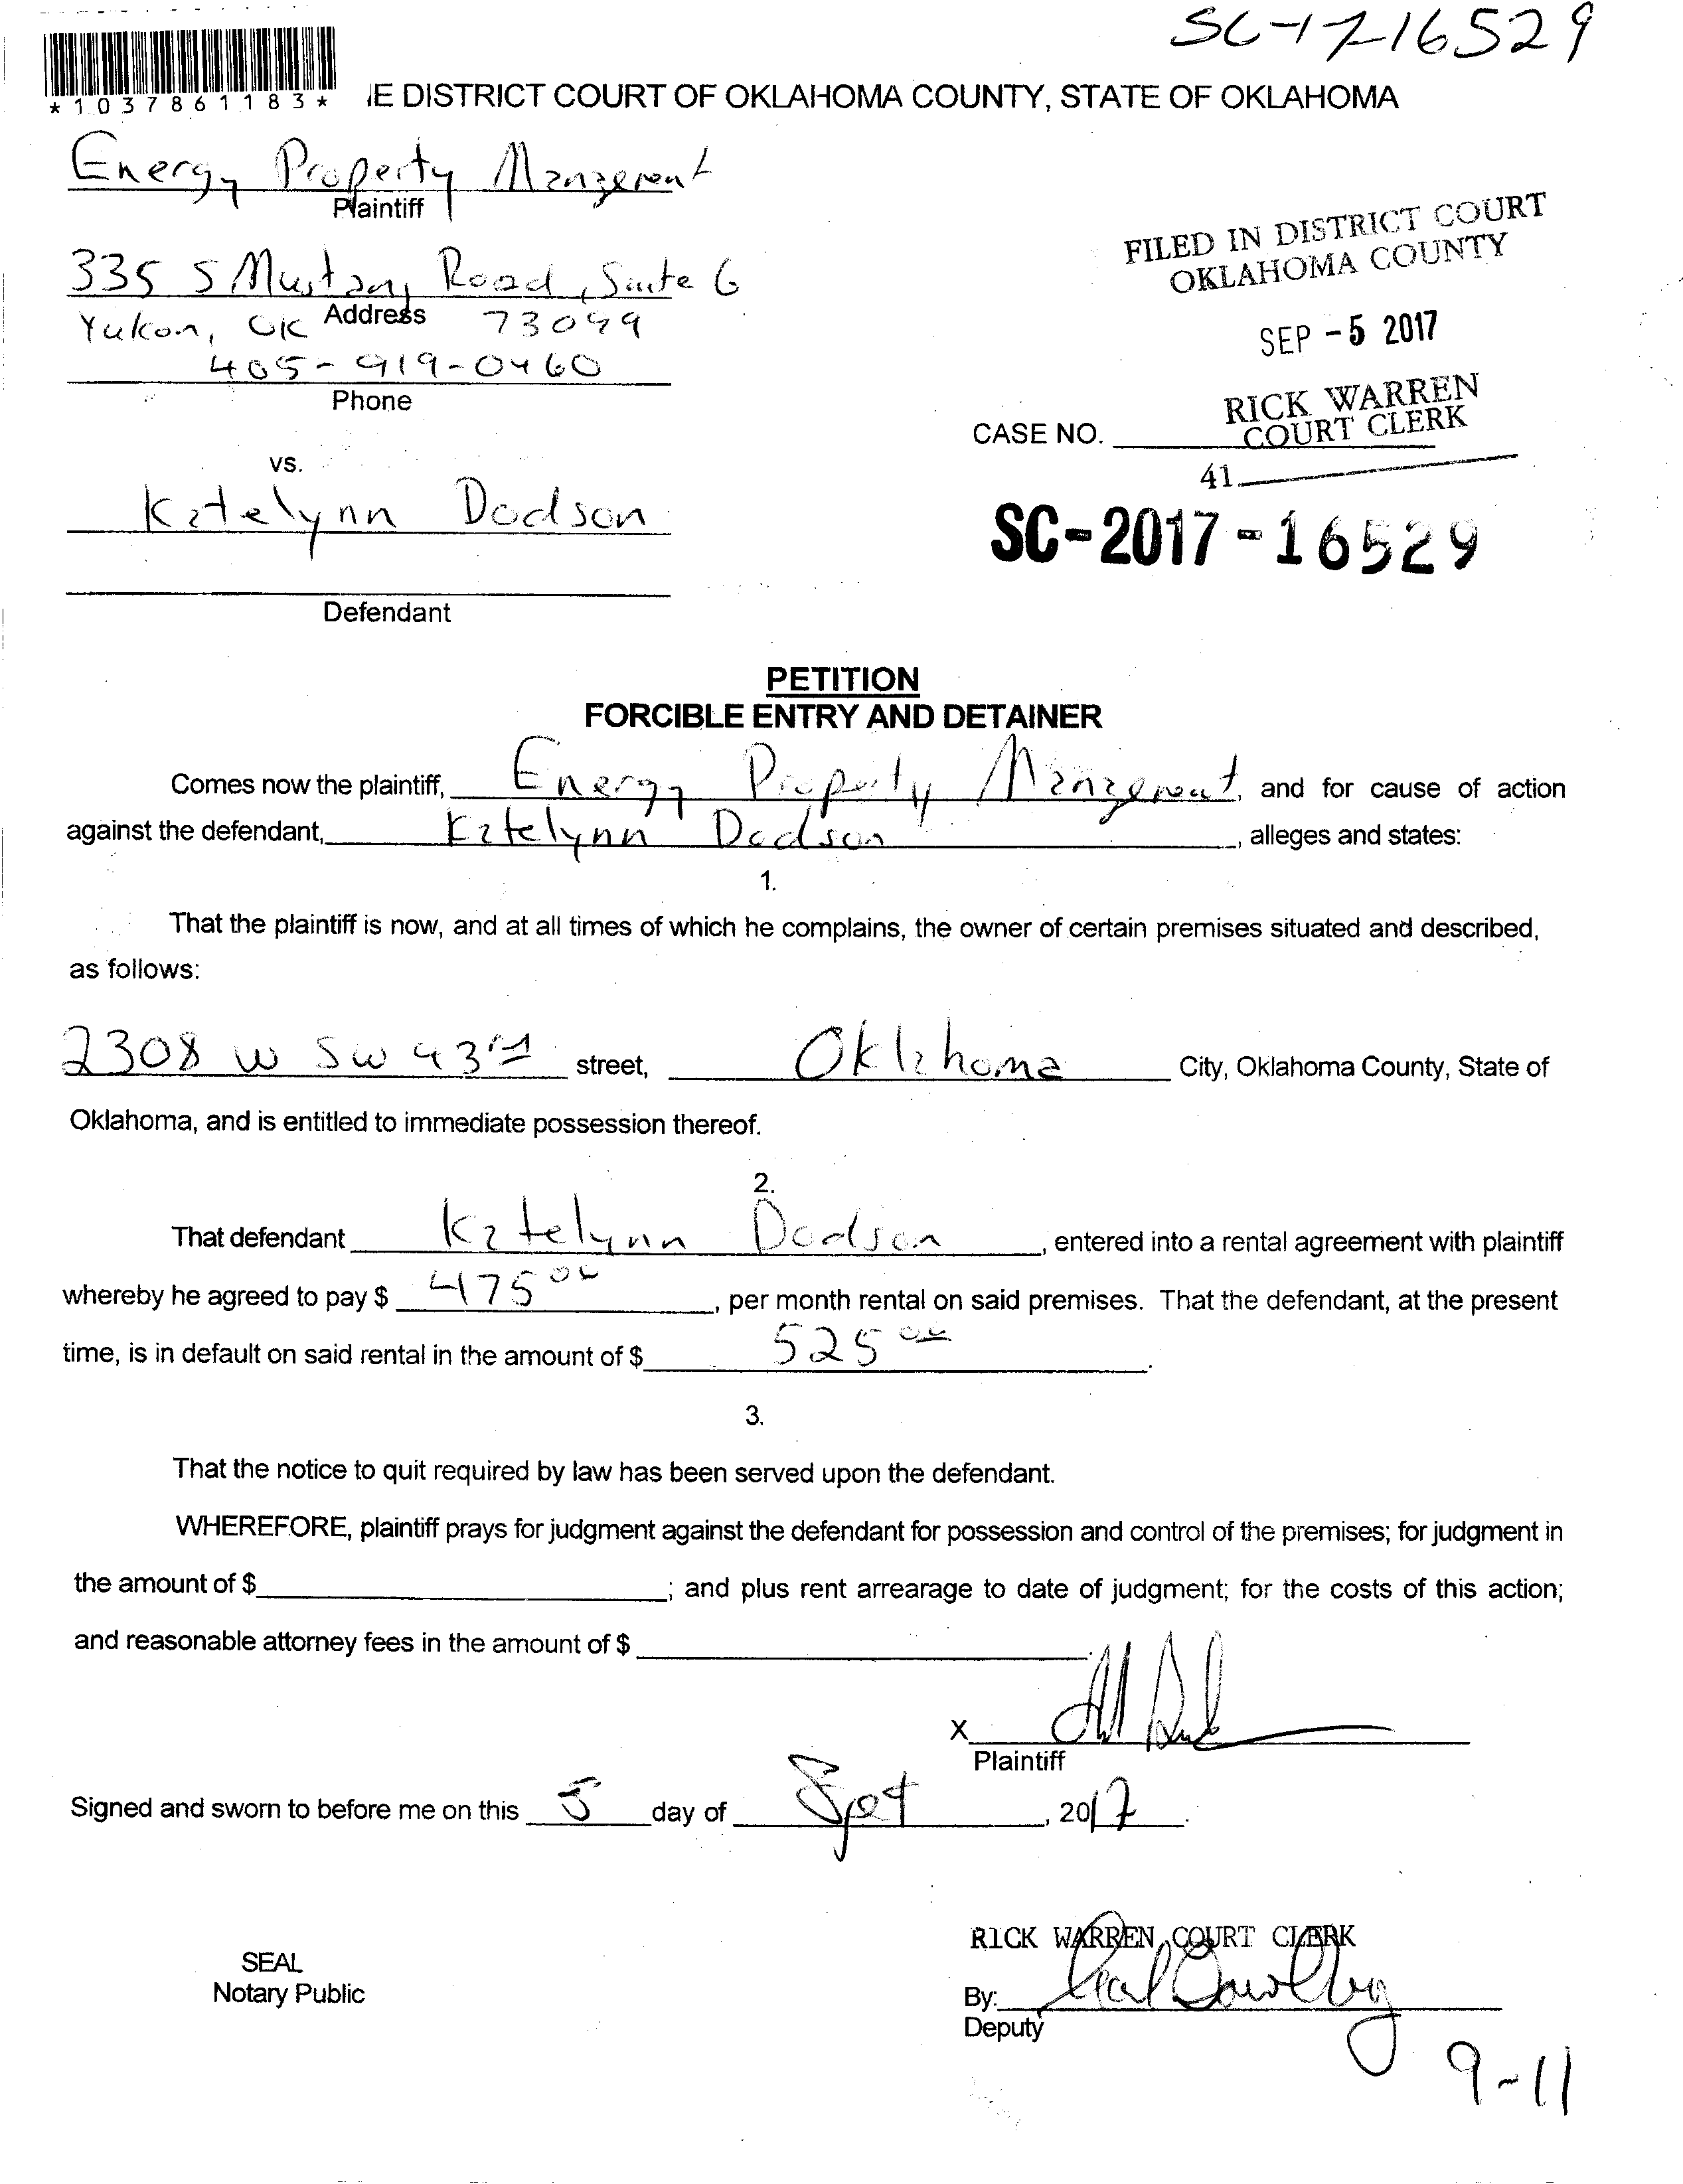 SC-17-16529
*1037861183*
IE DISTRICT COURT OF OKLAHOMA COUNTY, STATE OF OKLAHOMA
Energy Property Management
Plaintiff
335 S Mustang Road, Suite G
Address
Yukon, OK 73099
405-919-0460
Phone
FILED IN DISTRICT COURT
OKLAHOMA COUNTY
SEP -5 2017
RICK WARREN
COURT CLERK
CASE NO.
41
SC-2017-16529
vs.
Katelynn Dodson
Defendant
PETITION
FORCIBLE ENTRY AND DETAINER
Comes now the plaintiff, Energy Property Management, and for cause of action
against the defendant, Katelynn Dodson, alleges and states:
1.
That the plaintiff is now, and at all times of which he complains, the owner of certain premises situated and described,
as follows:
2308 W SW 43rd street, Oklahoma City, Oklahoma County, State of
Oklahoma, and is entitled to immediate possession thereof.
2.
That defendant Katelynn Dodson, entered into a rental agreement with plaintiff
whereby he agreed to pay $ 475 00, per month rental on said premises. That the defendant, at the present
time, is in default on said rental in the amount of $ 525 00.
3.
That the notice to quit required by law has been served upon the defendant.
WHEREFORE, plaintiff prays for judgment against the defendant for possession and control of the premises; for judgment in
the amount of $ ; and plus rent arrearage to date of judgment; for the costs of this action;
and reasonable attorney fees in the amount of $ .
X
Plaintiff
Signed and sworn to before me on this 5 day of Spet, 2017.
RICK WARREN, COURT CLERK
SEAL
Notary Public
By:
Deputy
9-11